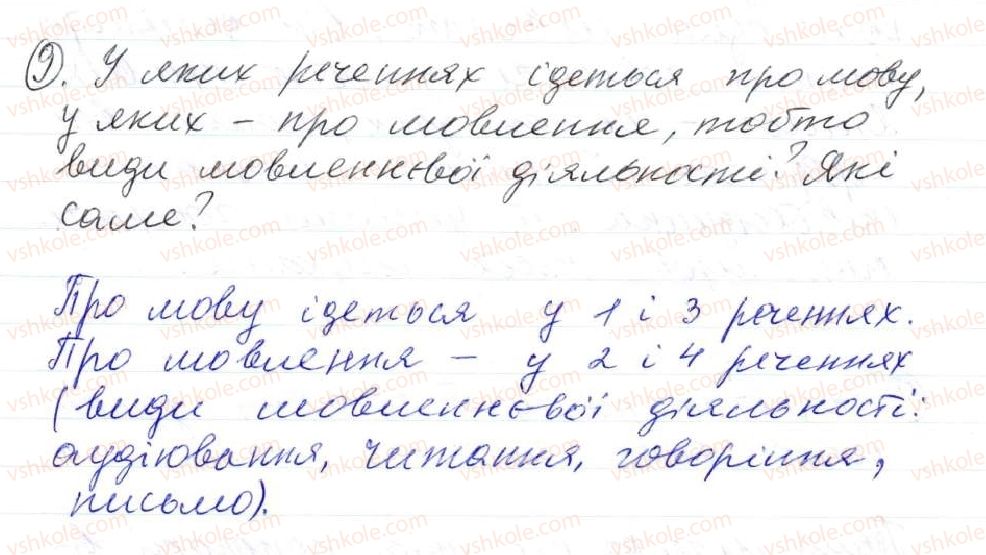 9. У яких реченнях ідеться про мову,
у яких - про мовлення, тобто
види мовленнєвої діяльності? Які
саме?
Про мову ідеться у 1 і 3 реченнях.
Про мовлення - у 2 і 4 реченнях
(види мовленнєвої діяльності:
аудіювання, читання, говоріння,
письмо).